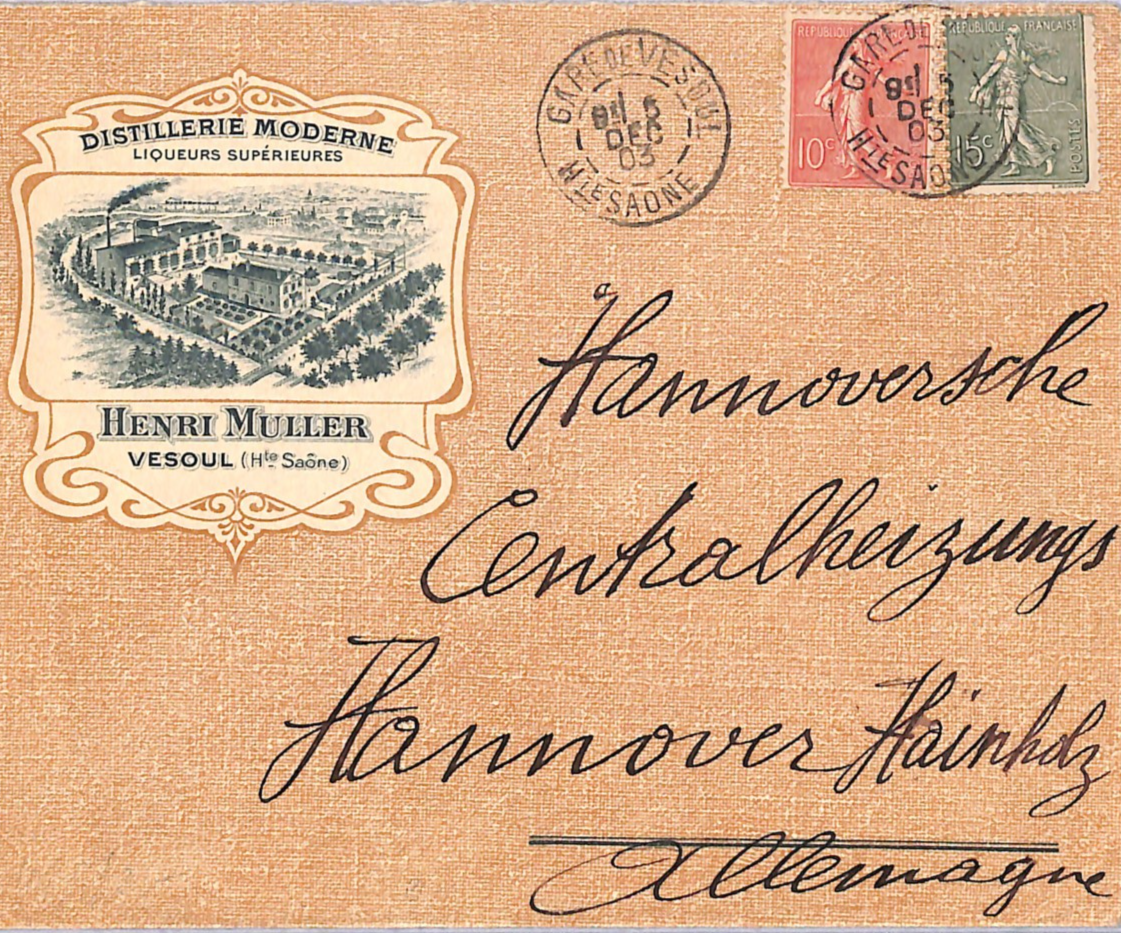 DISTILLERIE MODERNE
LIQUEURS SUPÉRIEURES
HENRI MULLER
VESOUL (Hte Saône)
GARE DE VESOUL
5
1 DEC
03
Hte SAONE
REPUBLIQUE FRANÇAISE
10c
GARE DE
5
1 DEC
03
Hte SAONE
REPUBLIQUE FRANÇAISE
15c
POSTES
Hannoversche
Centralheizungs
Hannover Hainholz
Allemagne